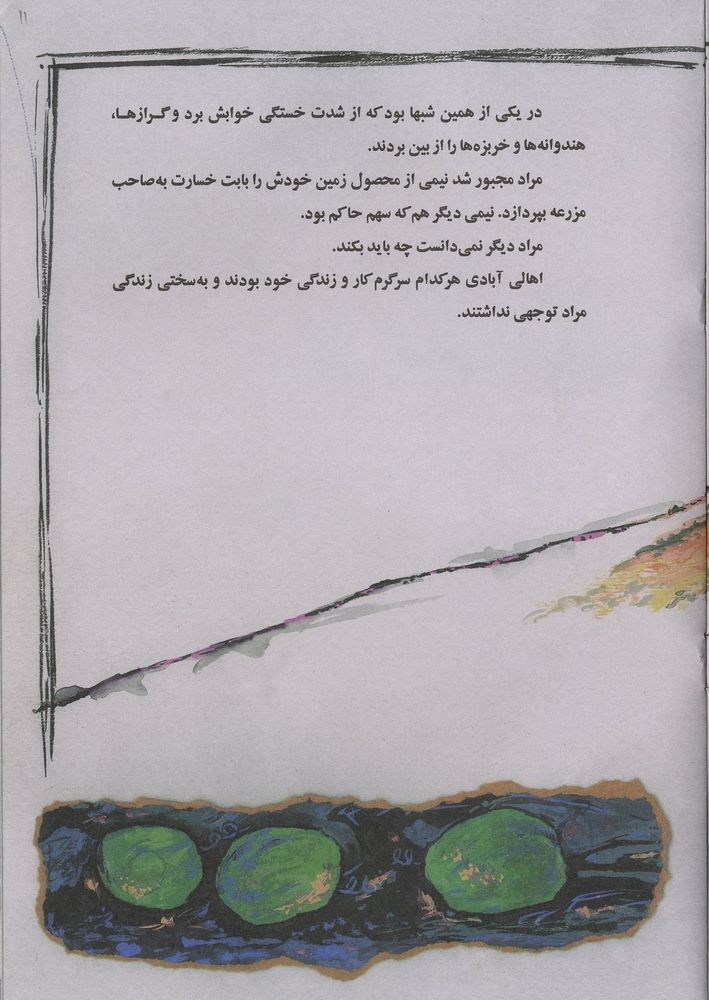 ۱۱
در یکی از همین شبها بود که از شدت خستگی خوابش برد و گـرازهـا،
هندوانه‌ها و خربزه‌ها را از بین بردند.
مراد مجبور شد نیمی از محصول زمین خودش را بابت خسارت به‌صاحب
مزرعه بپردازد. نیمی دیگر هم که سهم حاکم بود.
مراد دیگر نمی‌دانست چه باید بکند.
اهالی آبادی هرکدام سرگرم کار و زندگی خود بودند و به‌سختی زندگی
مراد توجهی نداشتند.